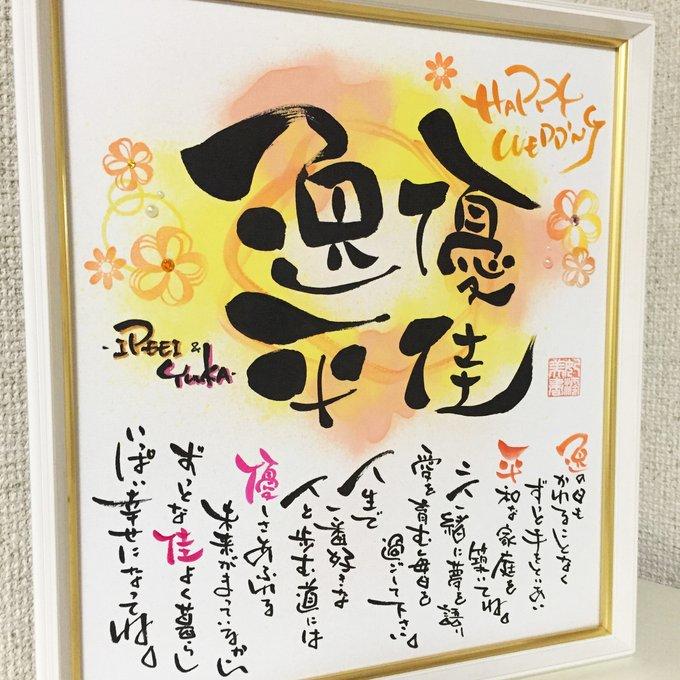 HAPPY
WEDDING
優佳
逸平
IPPEI &
YuuKA
逸の日も
かわることなく
ずっと手をとりあい
平和な家庭を
築いてね。
二人一緒に夢を語り
愛を育む毎日を
過ごして下さい。
人生で
一番好きな
人と歩む道には
優しさあふれる
未来がまって
ずっとな佳よく暮らし
いっぱい幸せになってね。